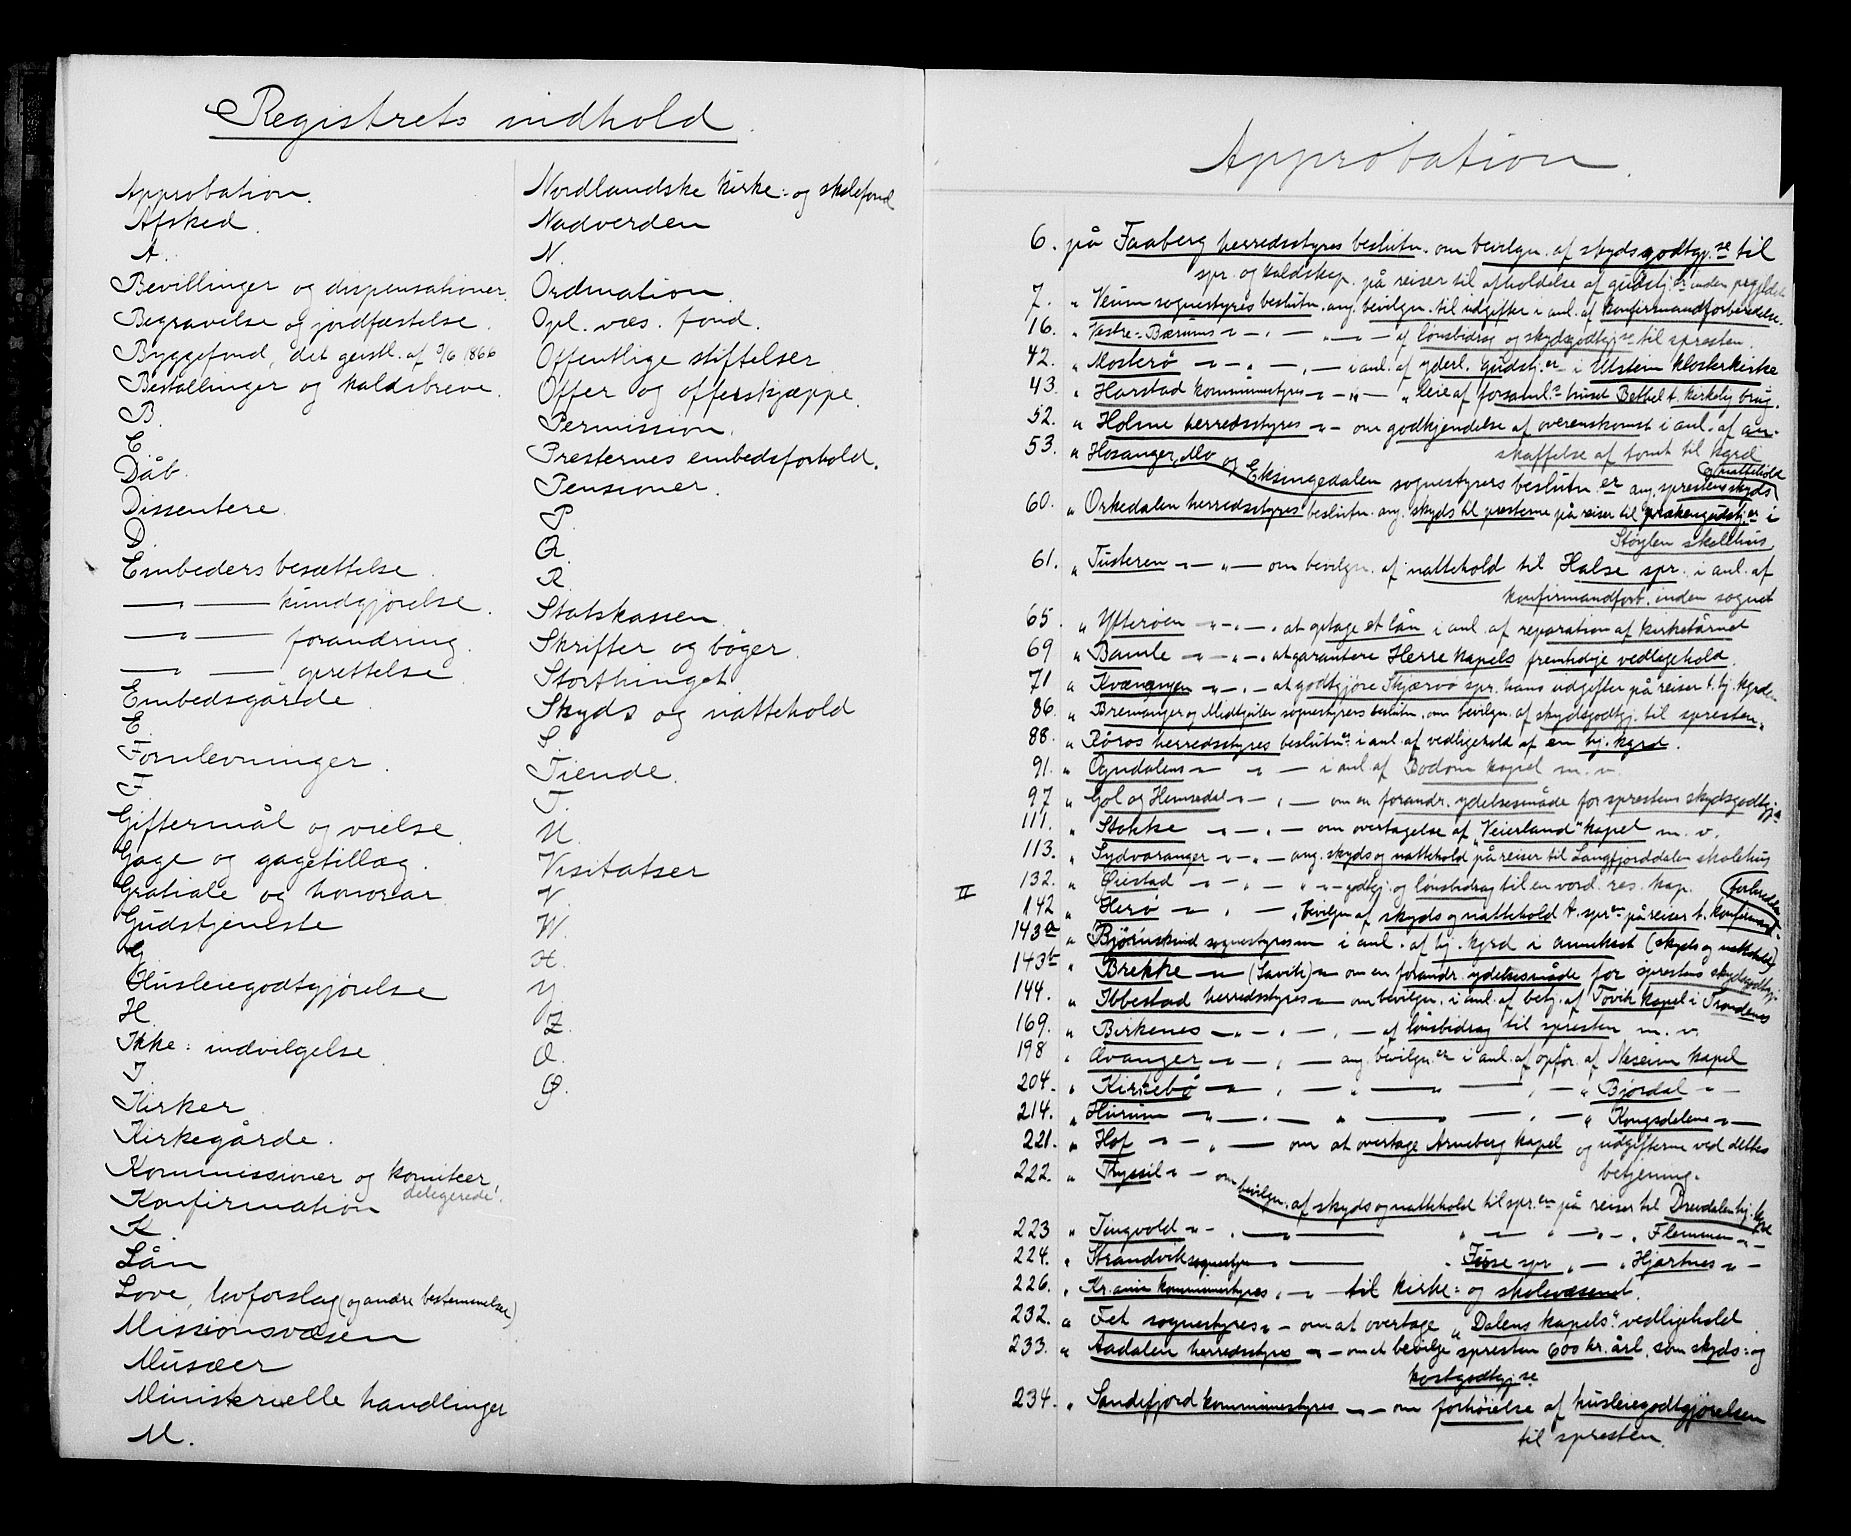 Registrets indhold.
Approbation.
Afsked.
A.
Bevillinger og dispensationer.
Begravelse og jordfæstelse.
Byggefond, det geistl. af 9/6 1866
Bestallinger og kaldsbreve.
B.
C
Dåb.
Dissentere.
D
Embeders besættelse.
—„— kundgjørelse.
—„— forandring.
—„— oprettelse.
Embedsgårde.
E
Fornlevninger.
F
Giftermål og vielse.
Gage og gagetillæg.
Gratiale og honorar
Gudstjeneste
G
Husleiegodtgjørelse
H.
Ikke: indvilgelse.
I.
Kirker.
Kirkegårde.
Kommissioner og komiteer,
delegerede.
Konfirmation
K.
Lån
Love, lovforslag (og andre bestemmelser)
Missionsvæsen
Musæer
Ministerielle handlinger
M.
Nordlandske kirke- og skolefond
Nadverden
N.
Ordination.
Opl. væs. fond.
Offentlige stiftelser
Offer og offerskjæppe.
Permission.
Presternes embedsforhold.
Pensioner.
P.
Q.
R
Statskassen
Skrifter og bøger.
Storthinget
Skyds og nattehold
S
Tiende.
T.
U.
Visitatser
V.
W.
X.
Y.
Z.
Æ.
Ø.
Approbation.
6. på Faaberg herredsstyres beslutn. om bevilgn. af skydsgodtgj.se til
spr. og kaldskap. på reiser til afholdelse af gudstj.er inden
7. „ Veum sognestyres beslutn. ang. bevilgn. til udgifter i anl. af konfirmandforberedelse.
16. „ Vestre-Bærums „ — „ — af lønsbidrag og skydsgodtgj.se til spresten.
42. „ Mosterø „ — „ — i anl. af yderl. gudstj.er i Utstein klosterkirke
43. „ Harstad kommunestyres „ — „ — „ leie af forsaml.s huset Bethel t. kirkelig brug.
52. „ Holme herredsstyres „ — om godkjendelse af overenskomst i anl. af an-
skaffelse af tomt til kgrd
53. „ Hosanger, Mo og Eksingedalen sognestyrers beslutn.er ang. sprestens skyds
og nattehold
60. „ Orkedalen herredsstyres beslutn. ang. skyds til presterne på reiser til prækengudstj.er i
Støylen skolehus
61. „ Tusteren „ — „ — om bevilgn. af nattehold til Halse spr. i anl. af
konfirmandforb. inden sognet
65. „ Ytterøen „ — „ — at optage et lån i anl. af reparation af kirketårnet
69 „ Bamle „ — „ — at garantere Herre kapels fremtidige vedligehold.
71 „ Kvænangen „ — „ — at godtgjøre Skjærvø spr. hans udgifter på reiser t. hj. kgrden
86. „ Bremanger og Midtgulen sognestyrers beslutn. om bevilgn. af skydsgodtgj. til spresten.
88. „ Røros herredsstyres beslutn.er i anl. af vedligehold af en hj. kgrd.
91. „ Ogndalens „ „ — i anl. af Bodom kapel m. v.
97 „ Gol og Hemsedal „ — „ — om en forandr. ydelsesmåde for sprestens skydsgodtgj.se
111. „ Stokke „ — „ — om overtagelse af „Veierland" kapel m. v.
113. „ Sydvaranger „ — „ — ang. skyds og nattehold på reiser til Langfjorddalen skolehus
II
132. „ Øiestad „ — „ — „ „ — godtgj. og lønsbidrag til en vord. res. kap.
142 „ Herø „ — „ — „ bevilgn. af skyds og nattehold t. spr.en på reiser t. konfirmand-
forberedelse
143a „ Bjørnskind sognestyres „ i anl. af hj. kgrd i annekset (skyds og nattehold)
143b „ Brekke „ — (Lavik) „ — om en forandr. ydelsesmåde for sprestens skydsgodtgj.
144. „ Ibbestad herredsstyres „ — om bevilgn. i anl. af betj. af Tovik kapel i Trondenes
169. „ Birkenes „ — „ — „ — af lønsbidrag til spresten m. v.
198 „ Avanger „ — „ — ang. bevilgn.er i anl. af opfør. af Neseim kapel
204. „ Kirkebø „ — „ — „ — „ — „ — „ Bjordal „ —
214. „ Hurum „ — „ — „ — „ — „ Kongsdelene „ —
221. „ Hof „ — „ — om at overtage Arneberg kapel og udgifterne ved dettes
betjening.
222. „ Thyssil „ — om bevilgn. af skyds og nattehold til spr.en på reiser til Drevdalen hj. kgrd
223 „ Tingvold „ — „ — „ — „ — „ Flemmen „ —
224. „ Strandvik sognestyre „ — „ Fuse spr. „ — „ Hjartnes „ —
226. „ Kr.ania kommunestyres „ — „ — til kirke- og skolevæsenet.
232. „ Fet sognestyres „ — om at overtage „Dalens kapels" vedligehold
233. „ Aadalen herredsstyres „ — om at bevilge spresten 600 kr. årl. som skyds- og
kostgodtgj.se
234. „ Sandefjord kommunestyres „ — om forhøielse af husleiegodtgjørelsen
til spresten.